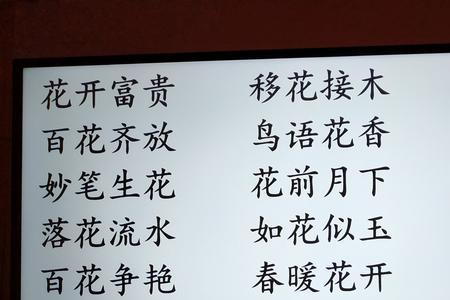 花开富贵 移花接木
百花齐放 鸟语花香
妙笔生花 花前月下
落花流水 如花似玉
百花争艳 春暖花开